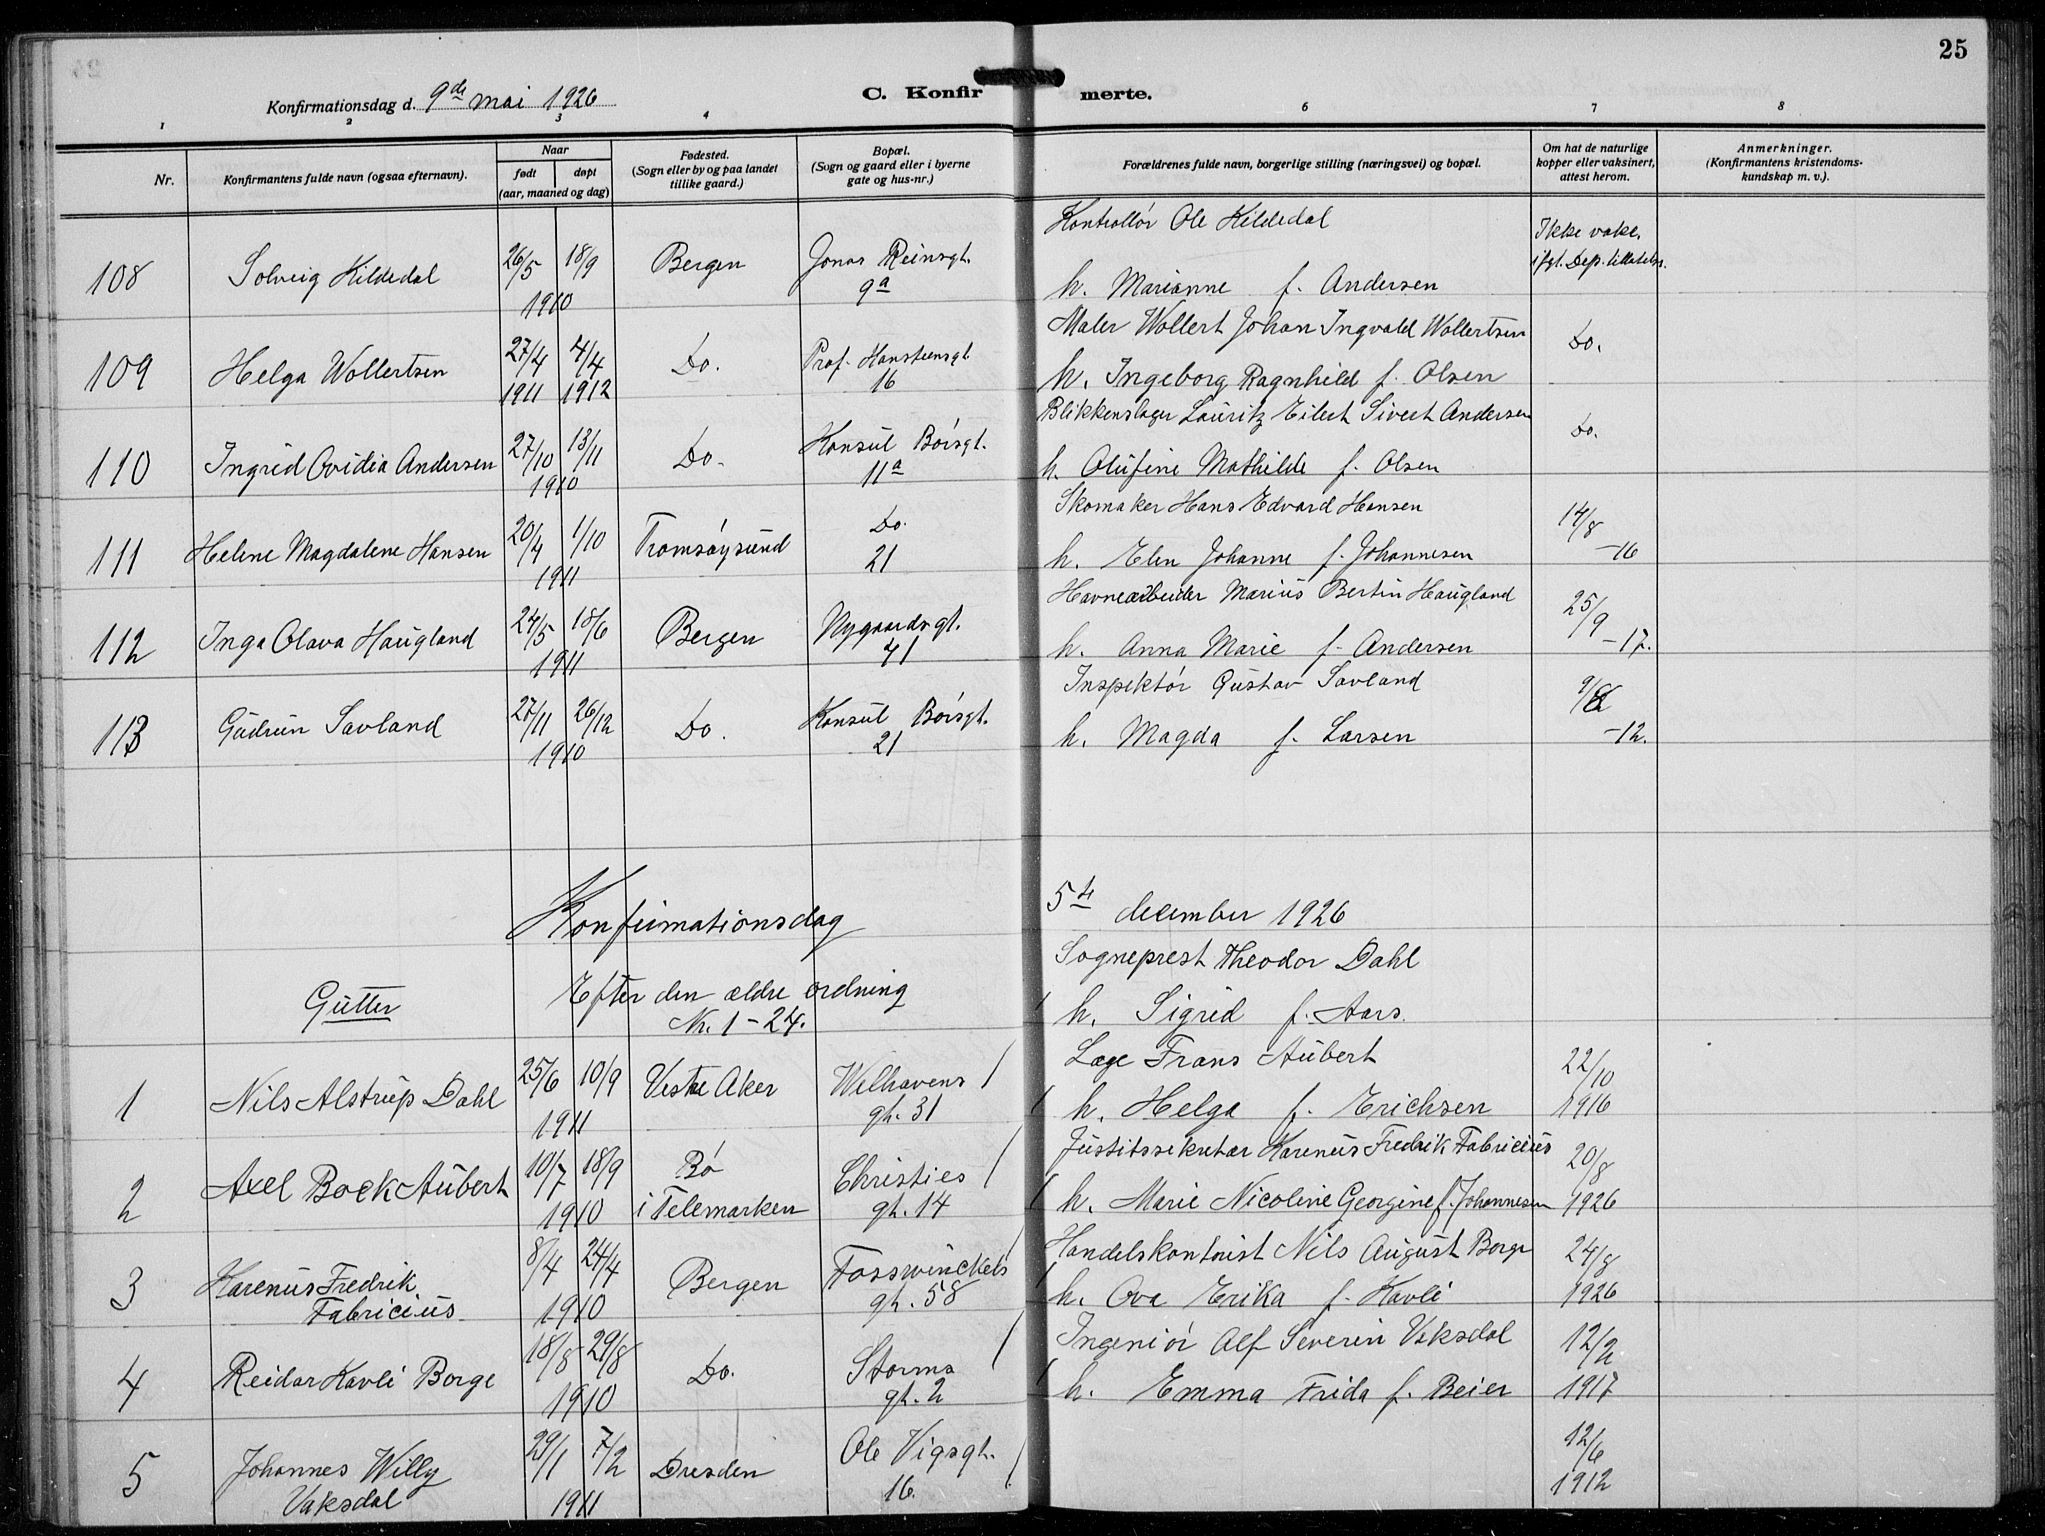 25
Konfirmationsdag d. 9de mai 1926
C. Konfir merte.
1 2 3 4 6 7 8
Nr.
Konfirmantens fulde navn (ogsaa efternavn).
Naar
født døpt
(aar, maaned og dag)
Fødested.
(Sogn eller by og paa landet
tillike gaard.)
Bopæl.
(Sogn og gaard eller i byerne
gate og hus-nr.)
Forældrenes fulde navn, borgerlige stilling (næringsvei) og bopæl.
Om hat de naturlige
kopper eller vaksinert,
attest herom.
Anmerkninger.
(Konfirmantens kristendoms-
kundskap m. v.).
Kontrollör Ole Kildedal
108 Solveig Kildedal 26/5 18/9 Bergen Jonas Reinsgt. Ikke vaks.
1910 9a h. Marianne f. Andersen ifgl. Dep. tillatelse.
Maler Wollert Johan Ingvald Wollertsen
109 Helga Wollertsen 27/4 4/4 Do. Prof. Hansteensgt. Do.
1911 1912 16 h. Ingeborg Ragnhild f. Olsen
Blikkenslager Lauritz Eilert Sivert Andersen
110 Ingrid Ovidia Andersen 27/10 13/11 Do. Konsul Börsgt. Do.
1910 11a h. Olufine Mathilde f. Olsen
Skomaker Hans Edvard Hansen
111 Helene Magdalene Hansen 20/4 1/10 Tromsöysund Do. 14/8
1911 21 h. Elen Johanne f. Johannesen -16
Havnearbeider Marius Bertin Haugland
112 Inga Olava Haugland 24/5 18/6 Bergen Nygaardsgt. 25/9
1911 41 h. Anna Marie f. Andersen -17.
Inspektör Gustav Savland
113 Gudrun Savland 27/11 26/12 Do. Konsul Börsgt.
1910 21 h. Magda f. Larsen -12.
Konfirmationsdag 5te december 1926
Sogneprest Theodor Dahl
Gutter Efter den ældre ordning
Nr. 1-24. h. Sigrid f. Aars.
Læge Frans Aubert
1 Nils Alstrup Dahl 25/6 10/9 Vestre Aker Welhavens 22/10
1911 gt. 31 h. Helga f. Erichsen 1916
Justitssekretær Karenus Fredrik Fabricius
2 Axel Bock Aubert 10/7 18/9 Bø Christies 20/8
1910 i Telemarken gt. 14 h. Marie Nicoline Georgine f. Johannesen 1926
Handelskontorist Nils August Borge
3 Karenus Fredrik 8/4 24/4 Bergen Fosswinckels 24/8
Fabricius 1910 gt. 58 h. Ova Erika f. Kavli 1926
Ingeniör Alf Severin Vaksdal
4 Reidar Kavli Borge 18/8 29/8 Do. Storms 12/2
1910 gt. 2 h. Emma Frida f. Beier 1917
5 Johannes Willy 29/1 7/2 Dresden Ole Vigsgt. 12/6
Vaksdal 1911 16. 1912